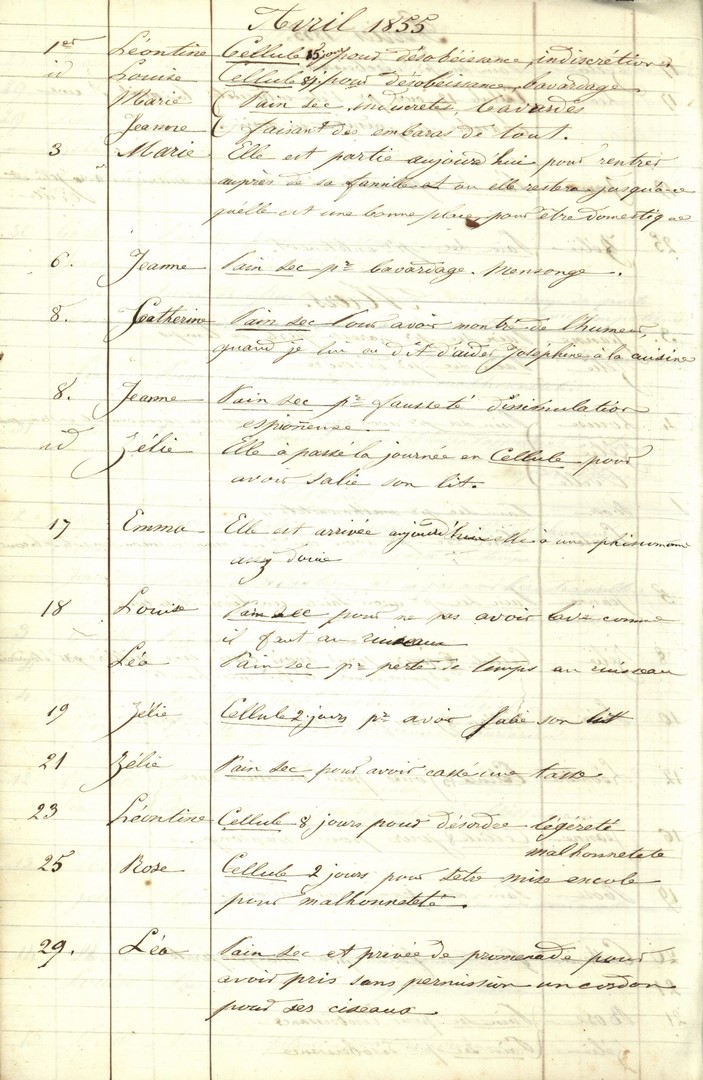 Avril 1855
1er Léontine Cellule 15 jours pour désobéissance indiscrétion
id Louise Cellule 8 j. pour désobéissance bavardage
Marie ( Pain sec indiscretes, bavardes
Jeanne ( faisant des embaras de tout.
3 Marie Elle est partie aujourd'hui pour rentrer
auprès de sa famille ou elle restera jusqu'à ce
qu'elle est une bonne place pour être domestique
6. Jeanne Pain sec pr bavardage. Mensonge.
8. Catherine Pain sec Pour avoir montré de l'humeur,
quand je lui ai dit d'aider Joséphine à la cuisine
8. Jeanne Pain sec pr fausseté dissimulation
espionneuse.
id Zélie Elle à passé la journée en Cellule pour
avoir salie son lit.
17 Emma Elle est arrivée aujourd'hui elle à une
18 Louise Pain sec pour ne pas avoir lavé comme
il faut au ruisseau
Léa Pain sec pr perte de temps au ruisseau
19 Zélie Cellule 2 jours pr avoir salie son lit
21 Zélie Pain sec pour avoir cassé une tasse
23 Léontine Cellule 8 jours pour désordre légèreté
malhonnetete
25 Rose Cellule 2 jours pour s'etre mise encole
pour malhonneteté.
29. Léa Pain sec et privée de promenade pour
avoir pris sans permission un cordon
pour ses ciseaux